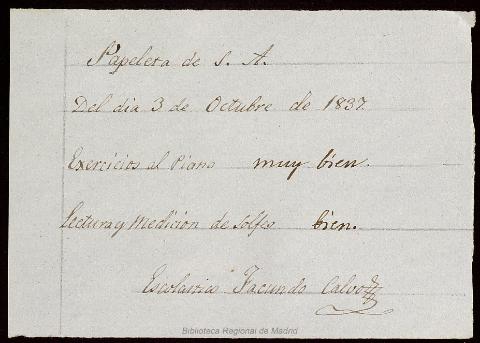 Papeleta de S. A.
Del dia 3 de Octubre de 1837.
Exercicios al Piano muy bien.
Lectura y Medicion de Solfeo bien.
Escolastico Facundo Calvo
Biblioteca Regional de Madrid